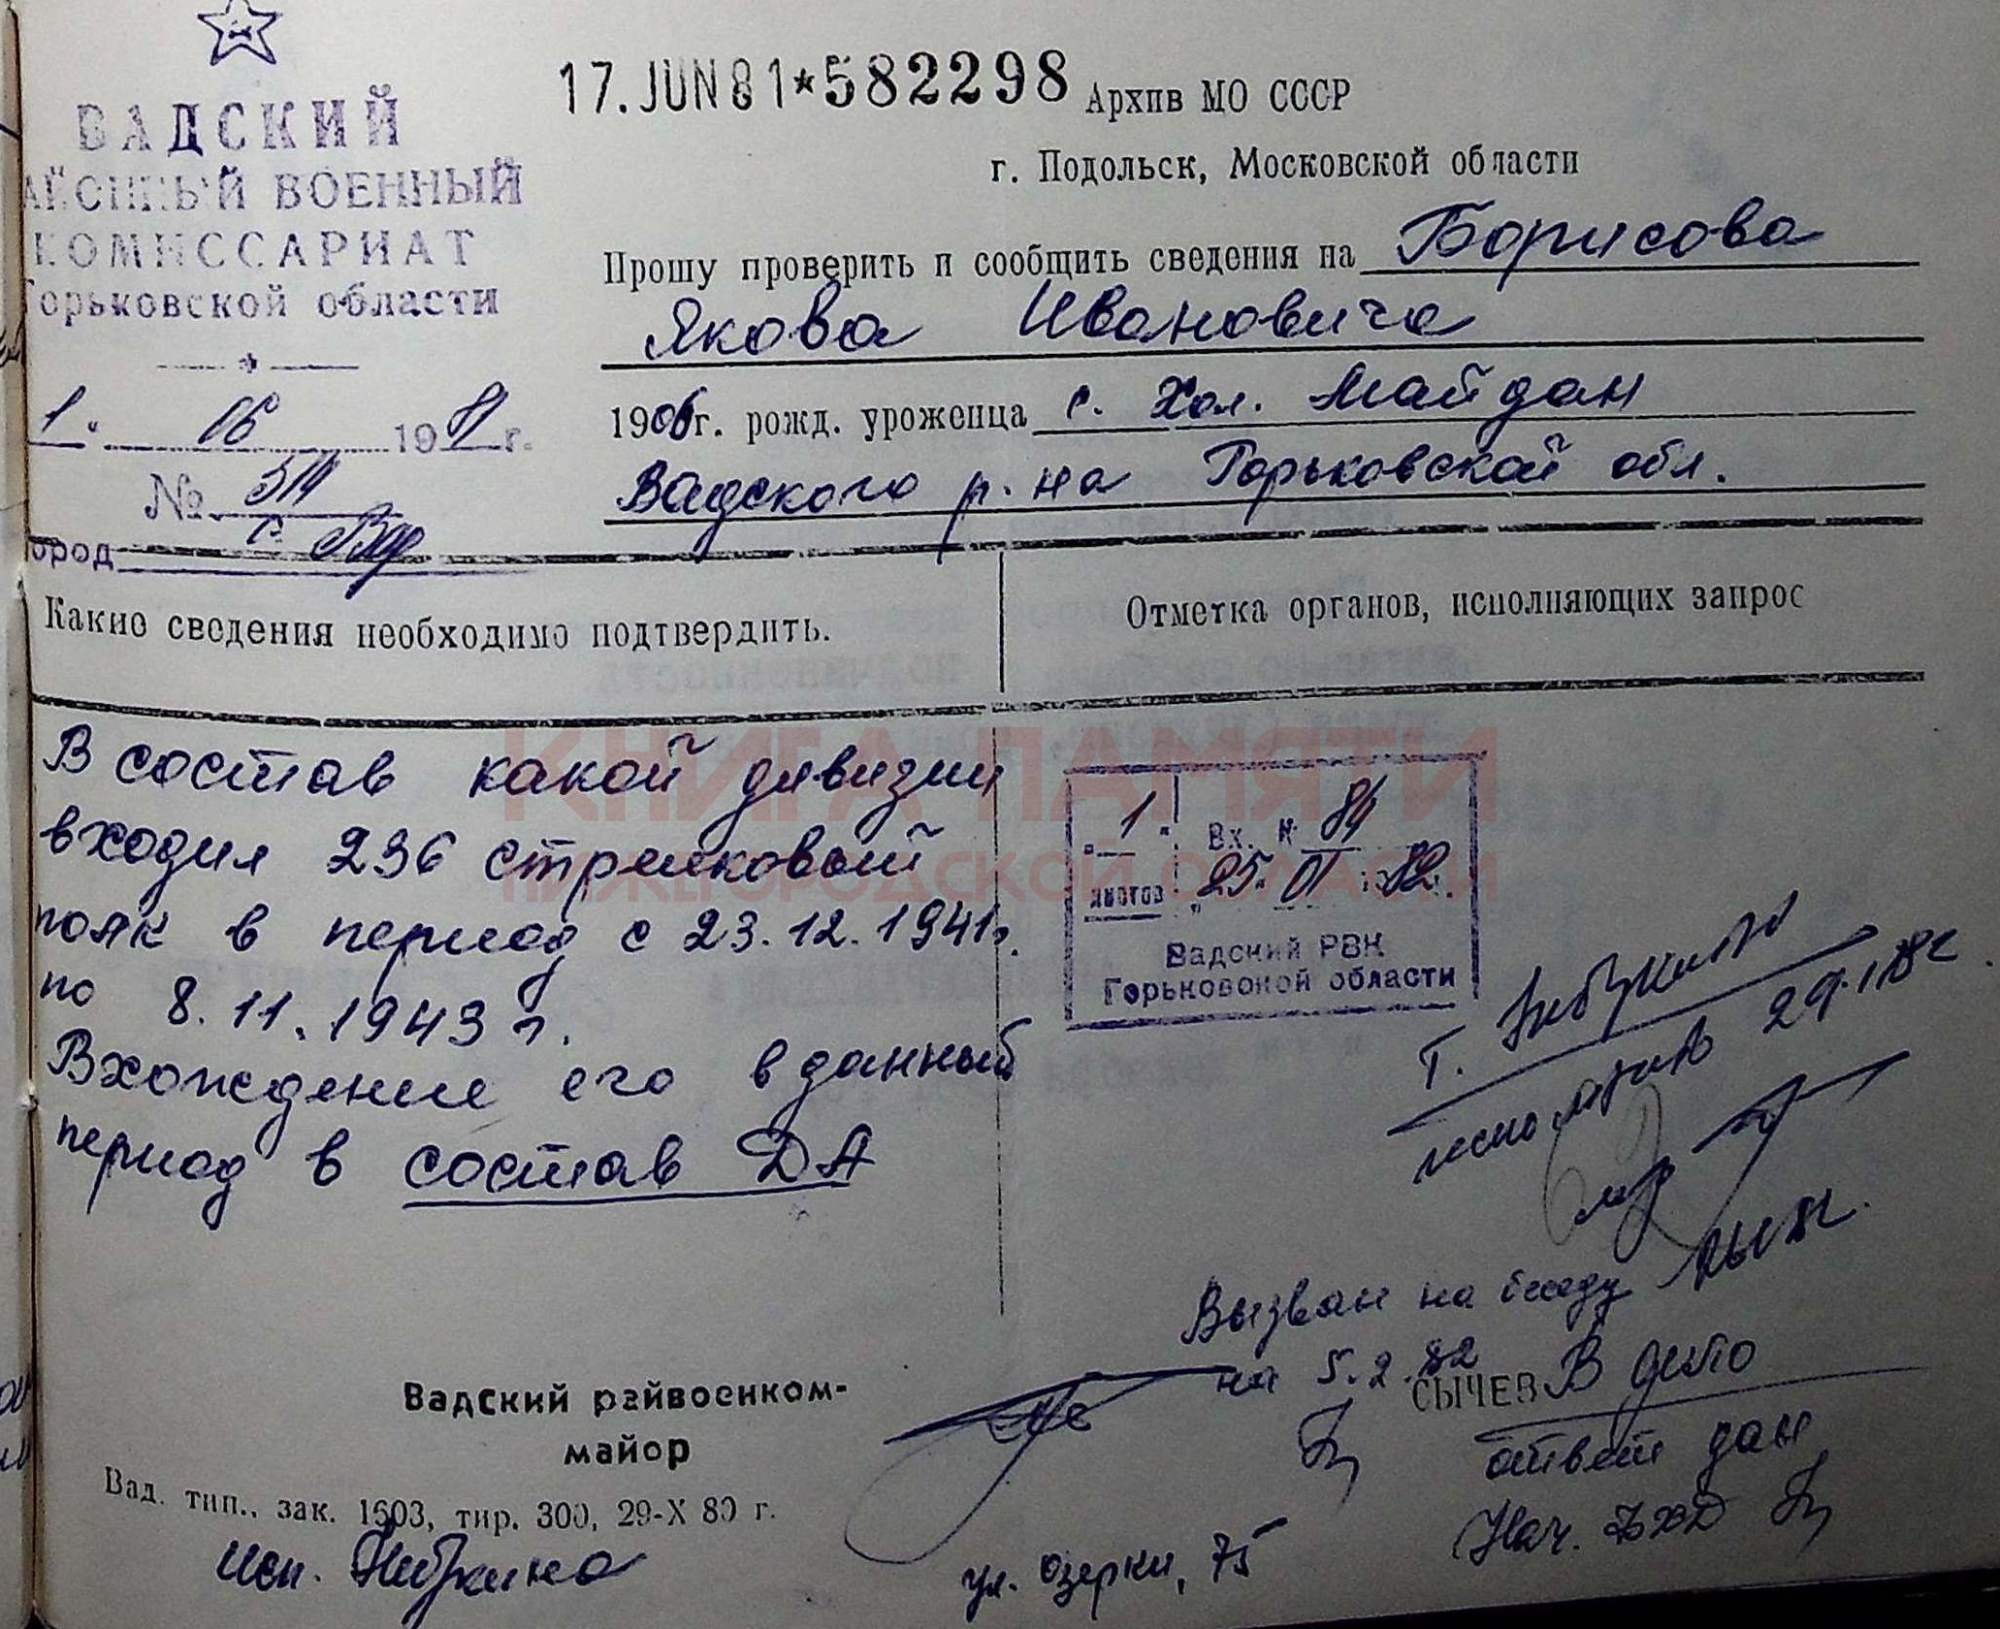 ВАДСКИЙ
АЙОННЫЙ ВОЕННЫЙ
КОМИССАРИАТ
Горьковской области
1. 06 1981 г.
№ 514
ород с. Вад
17. JUN 81*582298 Архив МО СССР
г. Подольск, Московской области
Прошу проверить и сообщить сведения на Борисова
Якова Ивановича
1906г. рожд. уроженца с. Хол. Майдан
Вадского р-на Горьковской обл.
Какие сведения необходимо подтвердить.
Отметка органов, исполняющих запрос
В состав какой дивизии
входил 236 стрелковый
полк в период с 23.12.1941г.
по 8.11.1943 г.
Вхождение его в данный
период в состав ДА
КНИГА ПАМЯТИ
НИЖЕГОРОДСКОЙ ОБЛАСТИ
1. Вх. № 84
листов "25" 01 1982.
Вадский РВК
Горьковской области
Т.
29.1.82
Вызван на беседу
на 5.2.82
СЫЧЕВ
В дело
ответ дан
Нач.
Вадский райвоенком-
майор
Вад. тип., зак. 1603, тир. 300, 29-X 80 г.
исп.
ул. Озерки, 75